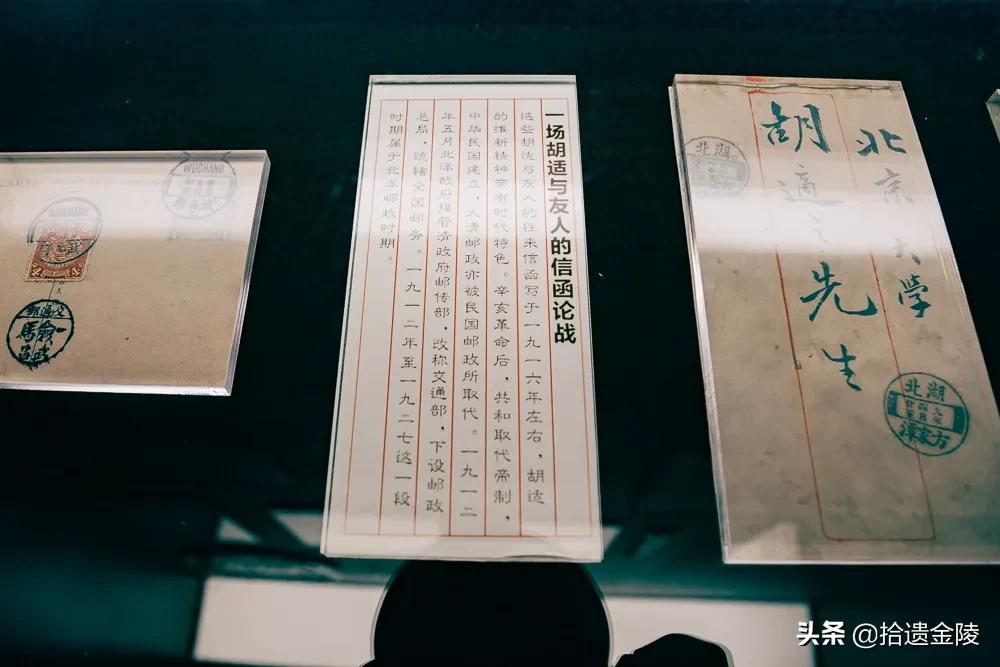 北京大學
胡適之先生
湖北
湖北
一场胡适与友人的信函论战
这些胡适与友人的往来信函写于一九一六年左右，胡适
的维新精神带有时代特色。辛亥革命后，共和取代帝制，
中华民国建立，大清邮政亦被民国邮政所取代。一九一二
年五月北洋政府接管清政府邮传部，改称交通部，下设邮政
总局，统辖全国邮务。一九一二年至一九二七这一段
时期属于北洋邮政时期。
WUCHANG
WUCHANG
头条 @拾遗金陵